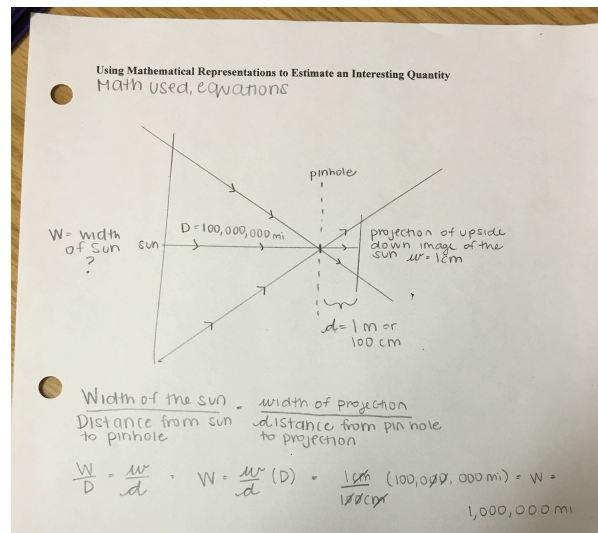 Using Mathematical Representations to Estimate an Interesting Quantity
Math used, equations
pinhole
W = width
of Sun
?
sun
D = 100,000,000 mi
projection of upside
down image of the
sun w = 1cm
d = 1 m or
100 cm
Width of the sun = width of projection
Distance from sun distance from pin hole
to pinhole to projection
W/D = w/d = W = w/d (D) = 1cm/100cm (100,000,000 mi) = W =
1,000,000 mi